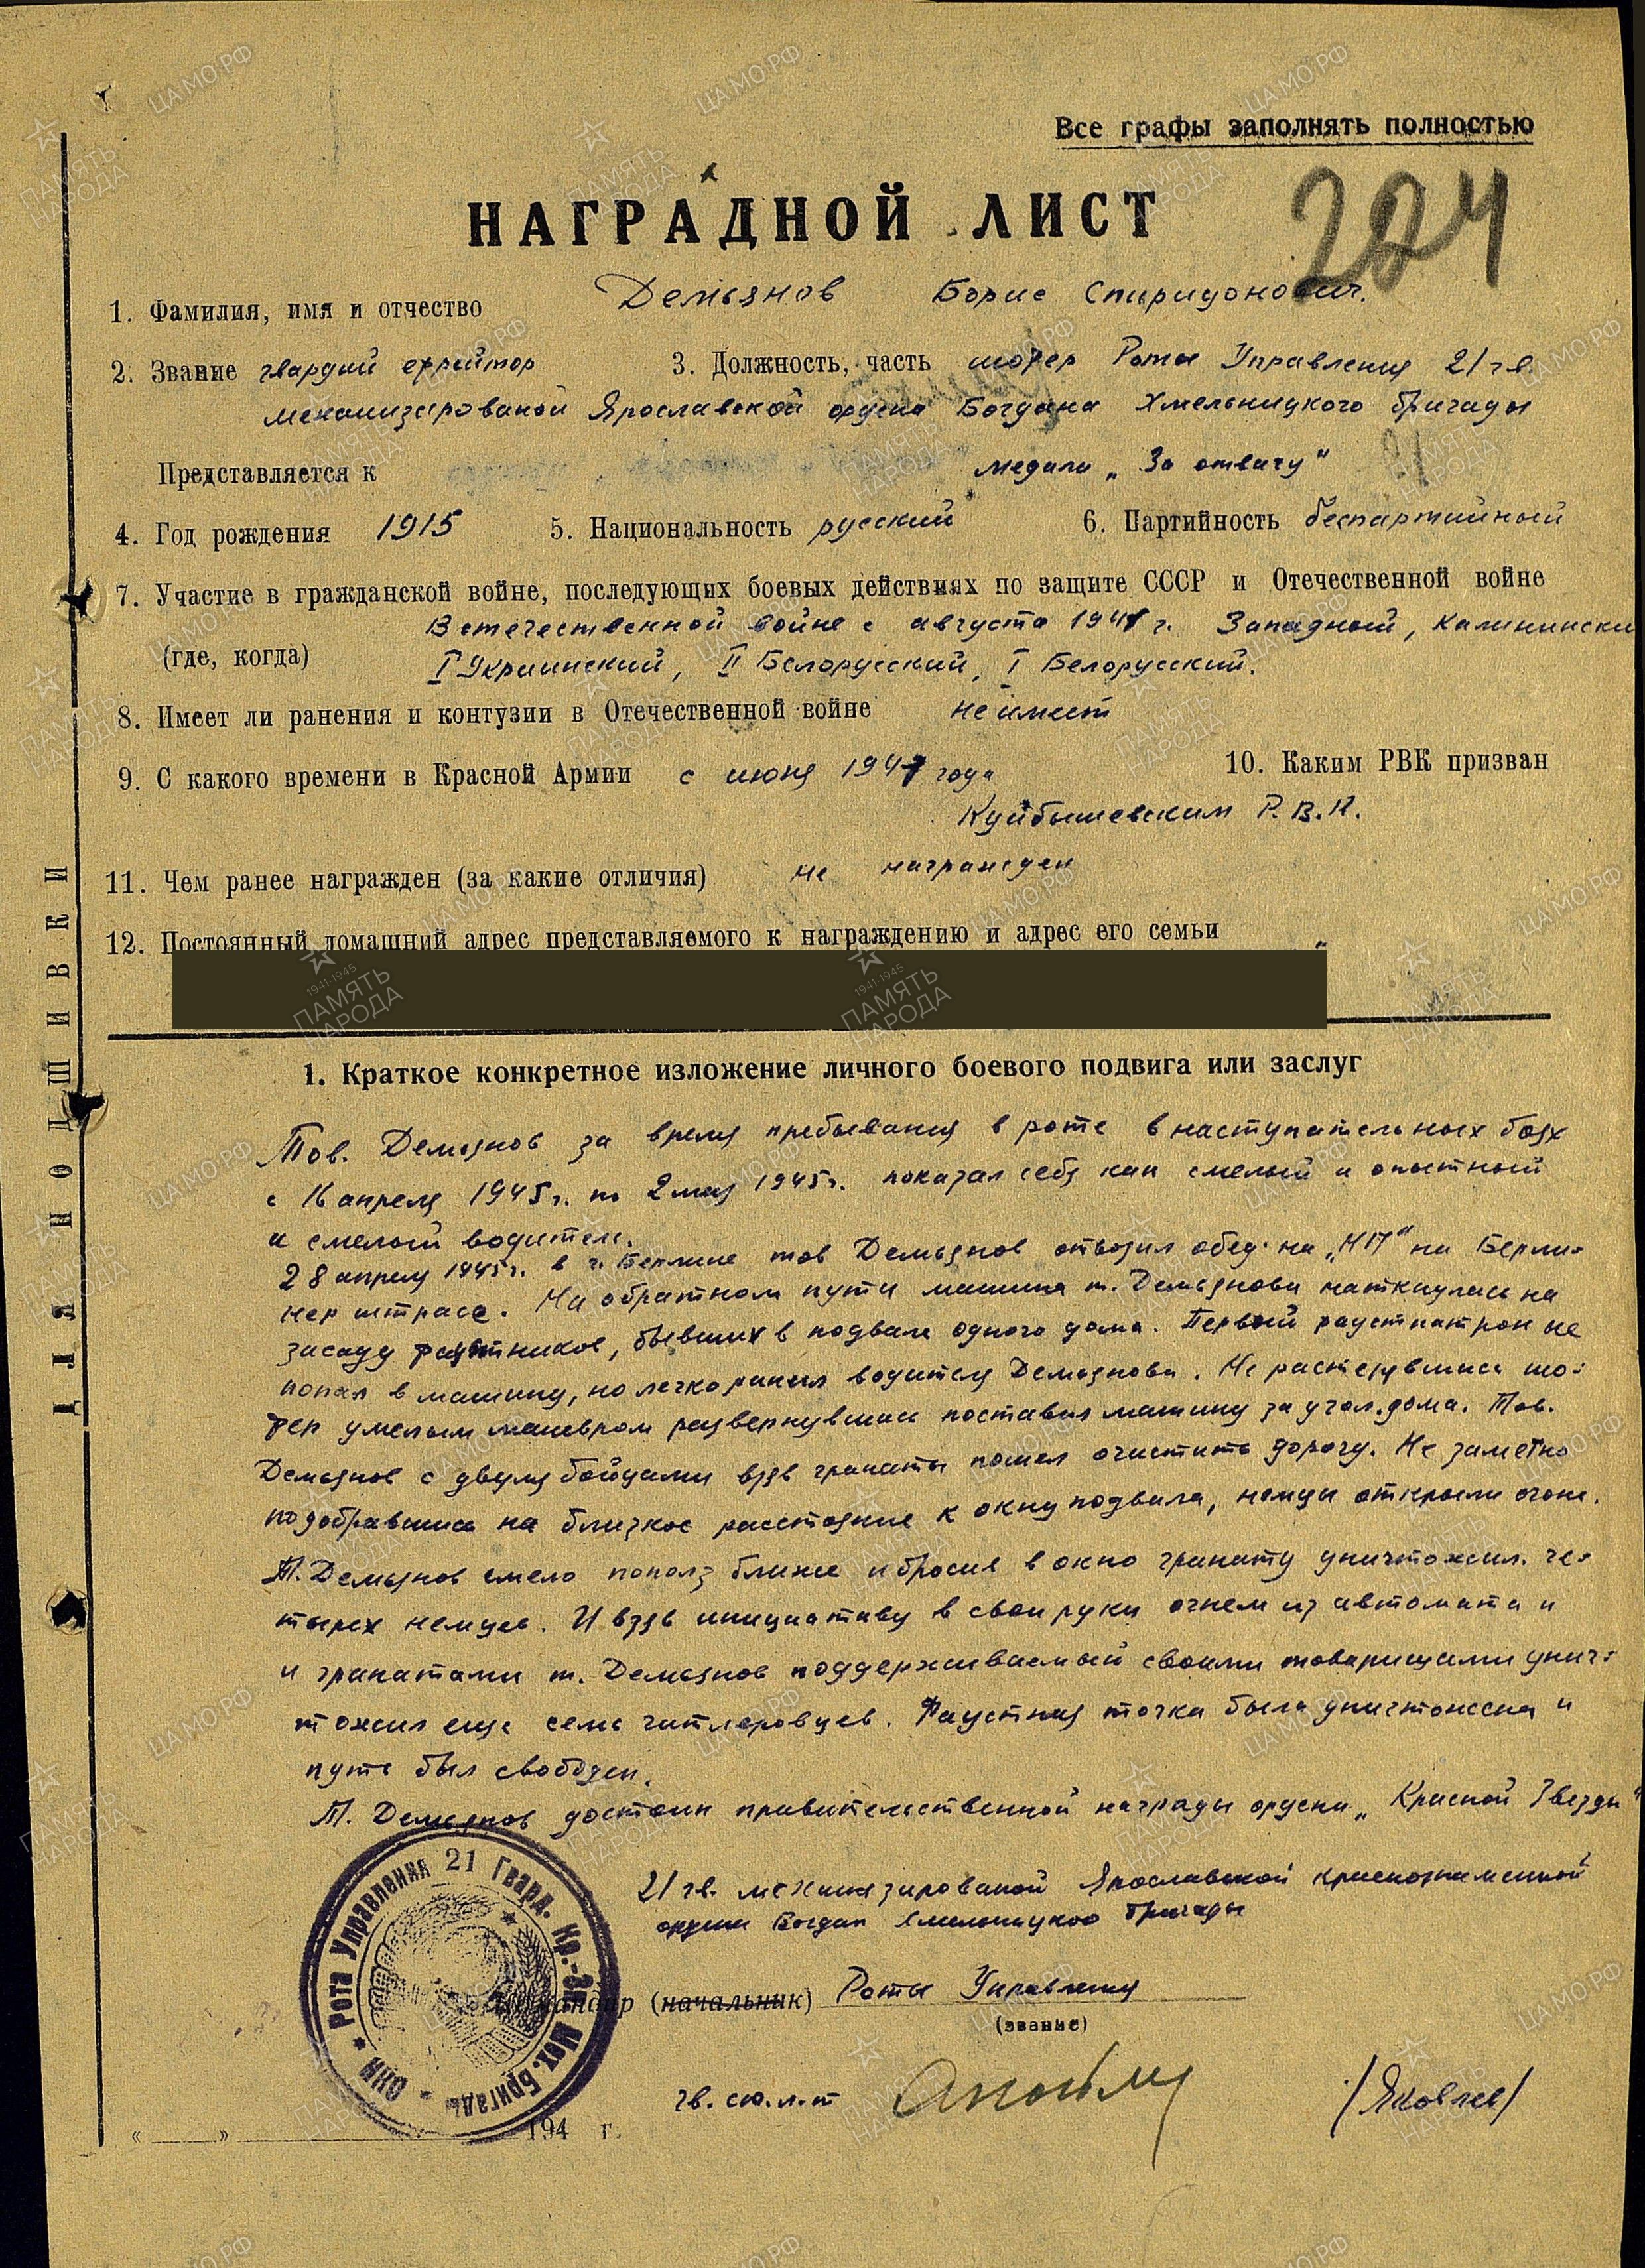 Все графы заполнять полностью
224
НАГРАДНОЙ ЛИСТ
1. Фамилия, имя и отчество Демьянов Борис Спиридонович.
2. Звание гвардии ефрейтор 3. Должность, часть шофер Роты Управления 21 гв.
механизированой Ярославской ордена Богдана Хмельницкого бригады
Представляется к медали „За отвагу"
4. Год рождения 1915 5. Национальность русский 6. Партийность беспартийный
7. Участие в гражданской войне, последующих боевых действиях по защите СССР и Отечественной войне
В отечественной войне с августа 1941 г. Западный, Калинински
(где, когда) I Украинский, II Белорусский, I Белорусский.
8. Имеет ли ранения и контузии в Отечественной войне не имеет
9. С какого времени в Красной Армии с июня 1941 года 10. Каким РВК призван
Куйбышевским Р.В.К.
11. Чем ранее награжден (за какие отличия) не награжден
12. Постоянный домашний адрес представляемого к награждению и адрес его семьи
ДЛЯ ПОДШИВКИ
1. Краткое конкретное изложение личного боевого подвига или заслуг
Тов. Демьянов за время пребывания в роте в наступательных боях
с 16 апреля 1945 г. по 2 мая 1945 г. показал себя как смелый и опытный
и смелый водитель.
28 апреля 1945 г. в г. Берлине тов Демьянов отвозил обед на „НП" на Берли-
нер штрасе. На обратном пути машина т. Демьянова наткнулась на
засаду фаустников, бывших в подвале одного дома. Первый фаустпатрон не
попал в машину, но легко ранил водителя Демьянова. Не растерявшись шо-
фер умелым маневром развернувшись поставил машину за угол дома. Тов.
Демьянов с двумя бойцами взяв гранаты пошел очистить дорогу. Не заметно
подобравшись на близкое расстояние к окну подвала, немцы открыли огонь.
Т. Демьянов смело пополз ближе и бросив в окно гранату уничтожил че-
тырех немцев. И взяв инициативу в свои руки огнем из автомата и
и гранатами т. Демьянов поддерживаемый своими товарищами унич-
тожил еще семь гитлеровцев. Фаустная точка была уничтожена и
путь был свободен.
Т. Демьянов достоин правительственной награды ордена „Красной Звезды"
21 гв. механизированой Ярославской краснознаменной
ордена Богдан Хмельницкого бригады
Командир (начальник) Роты Управления
(звание)
гв. ст. л-т /Яковлев/
« » 194 г.
Рота Управления 21 Гвард. Кр.-Зн. Мех. Бригады
ПАМЯТЬ НАРОДА
1941-1945
ЦАМО.РФ